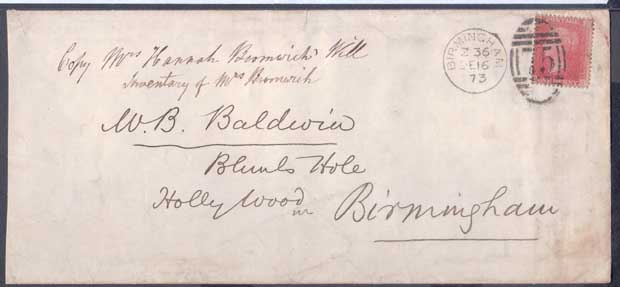 Copy Mrs Hannah Bromwich's Will
Inventory of Mrs Bromwich
BIRMINGHAM
Z 36
DE 16
73
75
W. B. Baldwin
Hole
Hollywood
nr Birmingham